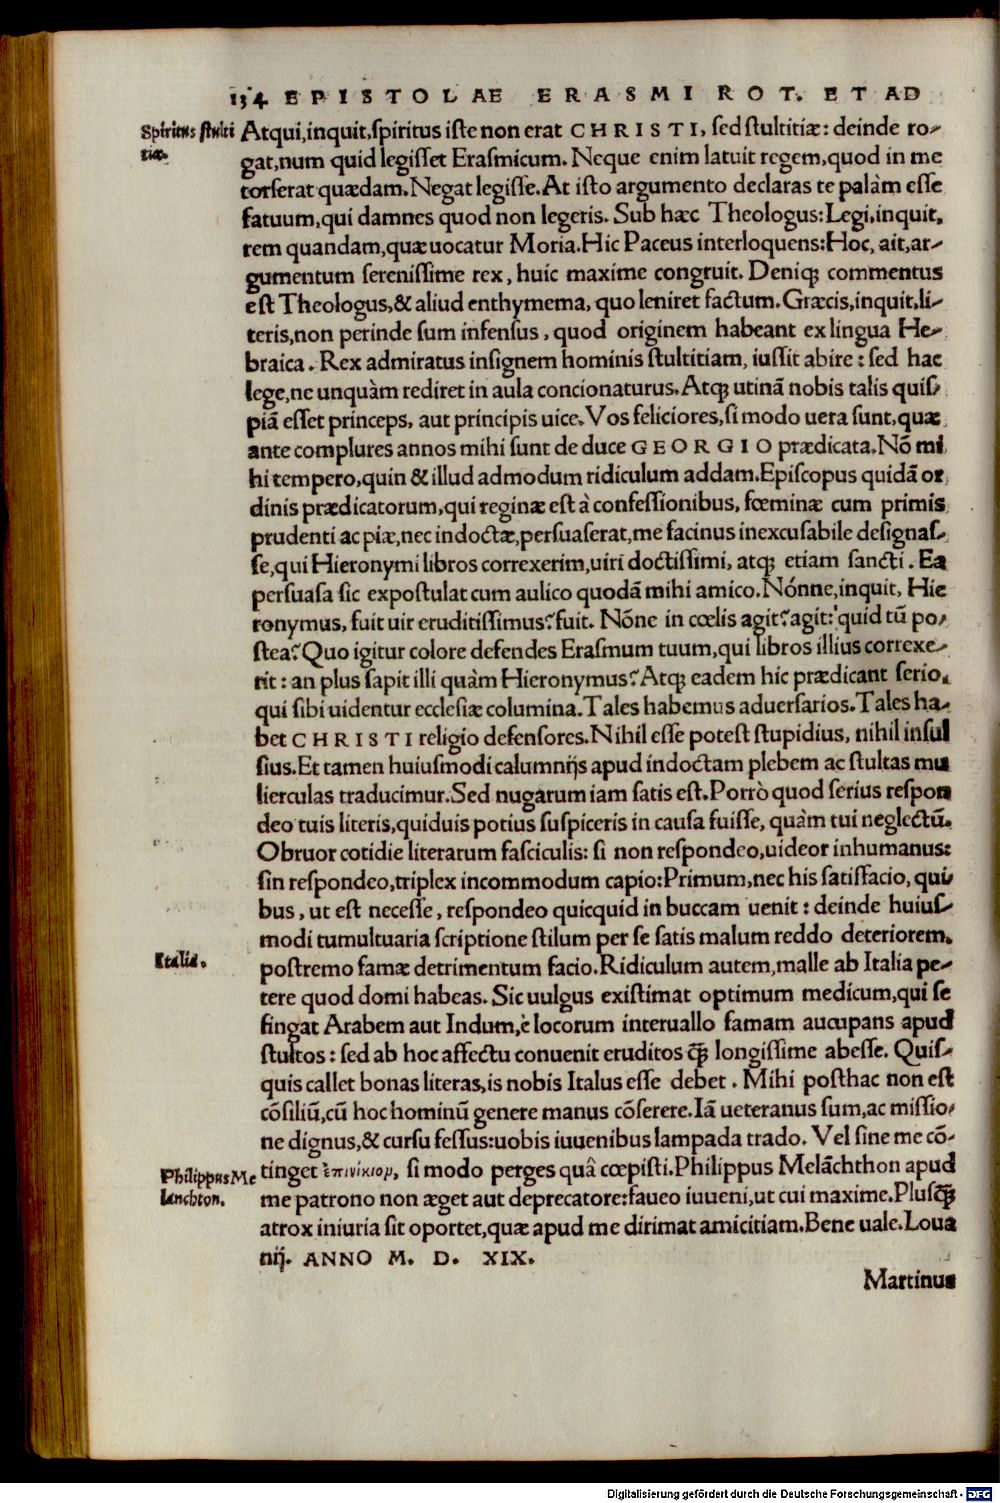 134 EPISTOLAE ERASMI ROT. ET AD
Spiritus stulti
tiæ.
Atqui,inquit,spiritus iste non erat CHRISTI, sed stultitiæ: deinde ro-
gat,num quid legisset Erasmicum. Neque enim latuit regem,quod in me
torserat quædam. Negat legisse. At isto argumento declaras te palàm esse
fatuum,qui damnes quod non legeris. Sub hæc Theologus: Legi,inquit,
rem quandam,quæ uocatur Moria. Hic Paceus interloquens: Hoc, ait,ar-
gumentum serenissime rex, huic maxime congruit. Deniqꝫ commentus
est Theologus,& aliud enthymema, quo leniret factum. Græcis,inquit,li-
teris,non perinde sum infensus, quod originem habeant ex lingua He-
braica. Rex admiratus insignem hominis stultitiam, iussit abire: sed hac
lege,ne unquàm rediret in aula concionaturus. Atqꝫ utinã nobis talis quis-
piã esset princeps, aut principis uice. Vos feliciores,si modo uera sunt,quæ
ante complures annos mihi sunt de duce GEORGIO prædicata. Nõ mi
hi tempero,quin & illud admodum ridiculum addam. Episcopus quidã or
dinis prædicatorum,qui reginæ est à confessionibus, fœminæ cum primis
prudenti ac piæ,nec indoctæ,persuaserat,me facinus inexcusabile designas-
se,qui Hieronymi libros correxerim,uiri doctissimi, atqꝫ etiam sancti. Ea
persuasa sic expostulat cum aulico quodã mihi amico. Nónne,inquit, Hie
ronymus, fuit uir eruditissimus? fuit. Nõne in cœlis agit? agit: quid tũ po-
stea? Quo igitur colore defendes Erasmum tuum,qui libros illius correxe-
rit: an plus sapit illi quàm Hieronymus? Atqꝫ eadem hic prædicant serio,
qui sibi uidentur ecclesiæ columina. Tales habemus aduersarios. Tales ha-
bet CHRISTI religio defensores. Nihil esse potest stupidius, nihil insul
sius. Et tamen huiusmodi calumnijs apud indoctam plebem ac stultas mu
lierculas traducimur. Sed nugarum iam satis est. Porrò quod serius respon
deo tuis literis,quiduis potius suspiceris in causa fuisse, quàm tui neglectũ.
Obruor cotidie literarum fasciculis: si non respondeo,uideor inhumanus:
sin respondeo,triplex incommodum capio: Primum,nec his satisfacio, qui-
bus, ut est necesse, respondeo quicquid in buccam uenit: deinde huius-
modi tumultuaria scriptione stilum per se satis malum reddo deteriorem.
Italia.
postremo famæ detrimentum facio. Ridiculum autem,malle ab Italia pe-
tere quod domi habeas. Sic uulgus existimat optimum medicum,qui se
fingat Arabem aut Indum,è locorum interuallo famam aucupans apud
stultos: sed ab hoc affectu conuenit eruditos qꝫ̃ longissime abesse. Quis-
quis callet bonas literas,is nobis Italus esse debet. Mihi posthac non est
cõsiliũ,cũ hoc hominũ genere manus cõserere. Iã ueteranus sum,ac missio-
ne dignus,& cursu fessus: uobis iuuenibus lampada trado. Vel sine me cõ-
Philippus Me
lanchton.
tinget ἐπινίκιον, si modo perges quâ cœpisti. Philippus Melãchthon apud
me patrono non æget aut deprecatore: faueo iuueni,ut cui maxime. Plusqꝫ̃
atrox iniuria sit oportet,quæ apud me dirimat amicitiam. Bene uale. Loua
nij. ANNO M. D. XIX.
Martinus
Digitalisierung gefördert durch die Deutsche Forschungsgemeinschaft - DFG